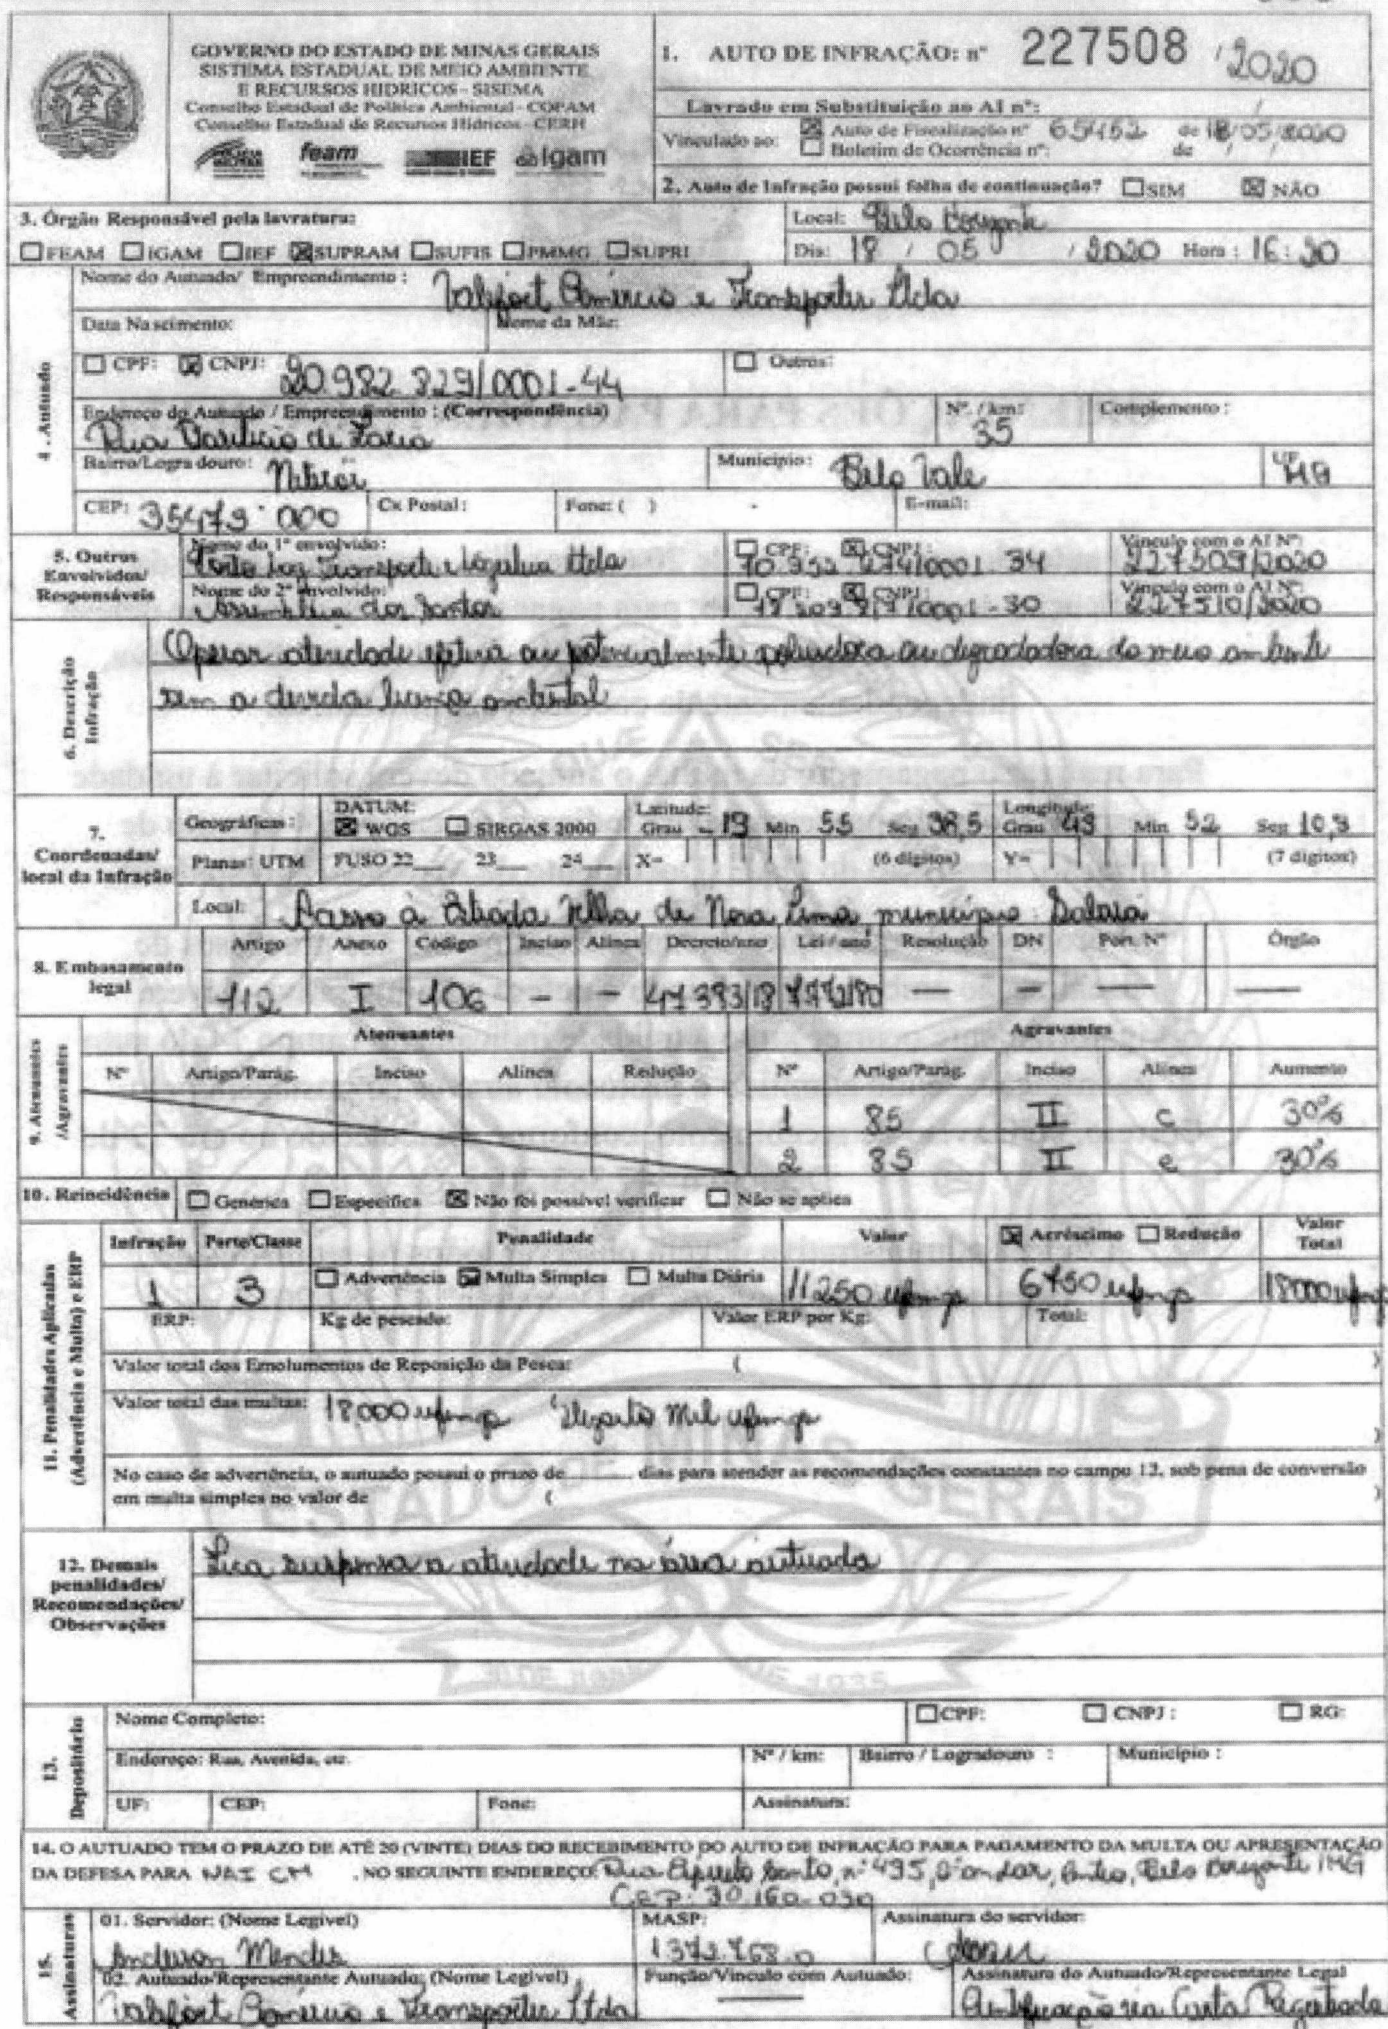 GOVERNO DO ESTADO DE MINAS GERAIS
SISTEMA ESTADUAL DE MEIO AMBIENTE
E RECURSOS HIDRICOS - SISEMA
Conselho Estadual de Política Ambiental - COPAM
Conselho Estadual de Recursos Hídricos - CERH
feam IEF igam
1. AUTO DE INFRAÇÃO: nº 227508 / 2020
Lavrado em Substituição ao AI nº: /
Vinculado ao: ☒ Auto de Fiscalização nº 65452 de 18/05/2020
☐ Boletim de Ocorrência nº: de / /
2. Auto de Infração possui folha de continuação? ☐ SIM ☒ NÃO
3. Órgão Responsável pela lavratura:
☐ FEAM ☐ IGAM ☐ IEF ☒ SUPRAM ☐ SUFIS ☐ PMMG ☐ SUPRI
Local: Belo Horizonte
Dia: 18 / 05 / 2020 Hora: 16:30
4. Autuado
Nome do Autuado/ Empreendimento: Valefort Comércio e Transportes Ltda
Data Nascimento: Nome da Mãe:
☐ CPF: ☒ CNPJ: 20.982.829/0001-44 ☐ Outros:
Endereço do Autuado / Empreendimento: (Correspondência) Nº. / km: Complemento:
Rua de Faria 35
Bairro/Logradouro: Niterói Município: Belo Vale UF MG
CEP: 35473-000 Cx Postal: Fone: ( ) - E-mail:
5. Outros Envolvidos/ Responsáveis
Nome do 1º envolvido: ☐ CPF: ☒ CNPJ: Vinculo com o AI Nº:
Log Transporte e Logística Ltda 0001-34 227509/2020
Nome do 2º envolvido: ☐ CPF: ☒ CNPJ: Vinculo com o AI Nº:
dos Santos 0001-30 227510/2020
6. Descrição Infração
Operar atividade efetiva ou potencialmente poluidora ou degradadora do meio ambiente
sem a devida licença ambiental
7. Coordenadas/ local da Infração
Geográficas: DATUM: ☒ WGS ☐ SIRGAS 2000 Latitude: Grau - 19 Min 55 Seg 38,5 Longitude: Grau 43 Min 52 Seg 10,3
Planas: UTM FUSO 22 23 24 X= (6 dígitos) Y= (7 dígitos)
Local: Acesso à Estrada Velha de Nova Lima município Sabará
8. Embasamento legal
Artigo Anexo Código Inciso Alínea Decreto/ano Lei / ano Resolução DN Port. Nº Órgão
112 I 106 - - 47383/18 7772/80 - - - -
9. Atenuantes /Agravantes
Atenuantes Agravantes
Nº Artigo/Parág. Inciso Alínea Redução Nº Artigo/Parág. Inciso Alínea Aumento
1 85 II c 30%
2 85 II e 30%
10. Reincidência ☐ Genérica ☐ Específica ☒ Não foi possível verificar ☐ Não se aplica
11. Penalidades Aplicadas (Advertência e Multa) e ERP
Infração Porte/Classe Penalidade Valor ☒ Acréscimo ☐ Redução Valor Total
1 3 ☐ Advertência ☒ Multa Simples ☐ Multa Diária 11250 ufemgs 6750 ufemgs 18000 ufemgs
ERP: Kg de pescado: Valor ERP por Kg: Total:
Valor total dos Emolumentos de Reposição da Pesca: ( )
Valor total das multas: 18000 ufemgs Dezoito Mil ufemgs )
No caso de advertência, o autuado possui o prazo de ______ dias para atender as recomendações constantes no campo 12, sob pena de conversão
em multa simples no valor de ( )
12. Demais penalidades/ Recomendações/ Observações
Fica suspensa a atividade na área autuada
13. Depositário
Nome Completo: ☐ CPF: ☐ CNPJ: ☐ RG:
Endereço: Rua, Avenida, etc. Nº / km: Bairro / Logradouro : Município :
UF: CEP: Fone: Assinatura:
14. O AUTUADO TEM O PRAZO DE ATÉ 20 (VINTE) DIAS DO RECEBIMENTO DO AUTO DE INFRAÇÃO PARA PAGAMENTO DA MULTA OU APRESENTAÇÃO
DA DEFESA PARA NAI CM , NO SEGUINTE ENDEREÇO: Rua Espírito Santo, nº 495, andar, Centro, Belo Horizonte /MG
CEP: 30.160-030
15. Assinaturas
01. Servidor: (Nome Legível) MASP: Assinatura do servidor:
Anderson Mendes 1372.768-0
02. Autuado/Representante Autuado: (Nome Legível) Função/Vinculo com Autuado: Assinatura do Autuado/Representante Legal
Valefort Comércio e Transportes Ltda via Carta Registrada
ESTADO DE MINAS GERAIS